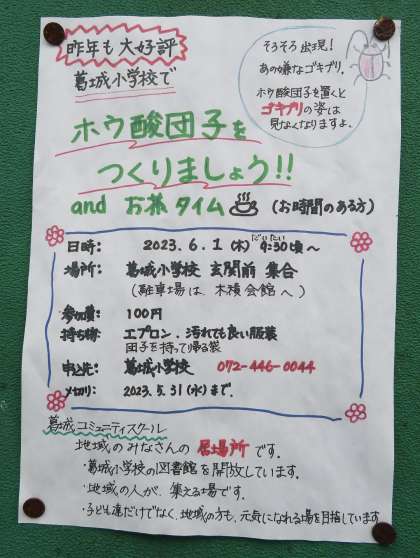 昨年も大好評
葛城小学校で
そろそろ出現！
あの嫌なゴキブリ。
ホウ酸団子を置くと
ゴキブリの姿は
見なくなりますよ。
ホウ酸団子を
つくりましょう!!
and お茶タイム (お時間のある方)
日時： 2023.6.1(木) 9:30頃～
だいたい
場所： 葛城小学校 玄関前 集合
(駐車場は、木積会館へ)
参加費： 100円
持ち物： エプロン、汚れても良い服装
団子を持って帰る袋
申込先： 葛城小学校 072-446-0044
〆切り： 2023.5.31(水)まで。
葛城コミュニティスクール
地域のみなさんの居場所です。
・葛城小学校の図書館を開放しています。
・地域の人が、集える場です。
・子ども達だけでなく、地域の方も、元気になれる場を目指しています